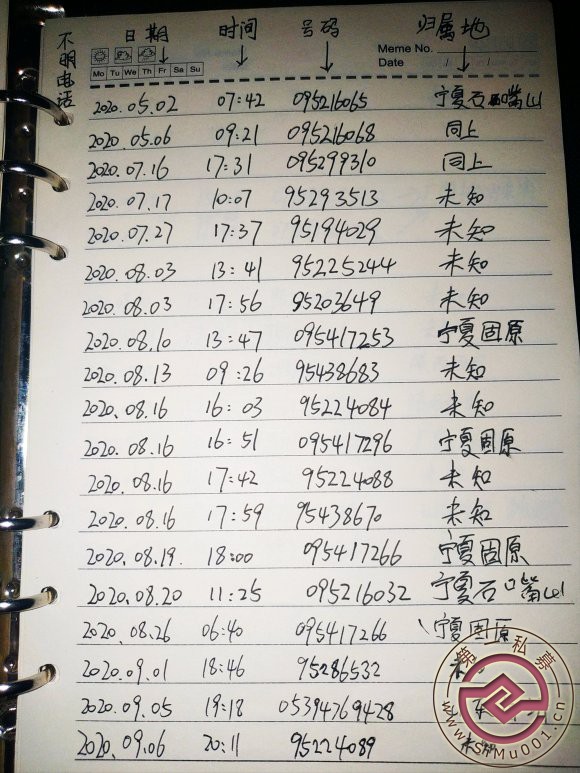 不明电话
日期 时间 号码 归属地
Meme No.
Mo Tu We Th Fr Sa Su
Date / /
2020.05.02 07:42 095216065 宁夏石嘴山
2020.05.06 09:21 095216068 同上
2020.07.16 17:31 095299310 同上
2020.07.17 10:07 95293513 未知
2020.07.27 17:37 95194029 未知
2020.08.03 13:41 95225244 未知
2020.08.03 17:56 95203649 未知
2020.08.10 13:47 095417253 宁夏固原
2020.08.13 09:26 95438683 未知
2020.08.16 16:03 95224084 未知
2020.08.16 16:51 095417296 宁夏固原
2020.08.16 17:42 95224088 未知
2020.08.16 17:59 95438670 未知
2020.08.19. 18:00 095417266 宁夏固原
2020.08.20 11:25 095216032 宁夏石嘴山
2020.08.26 06:40 095417266 宁夏固原
2020.09.01 18:46 95286532 未
2020.09.05 19:18 05394769428
2020.09.06 20:11 95224089 未知
第一私募
www.SiMu001.cn